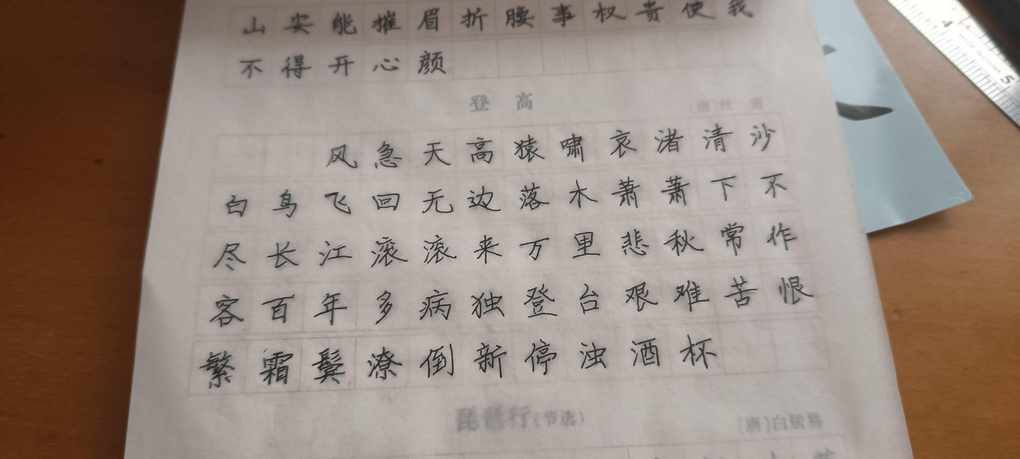 山安能摧眉折腰事权贵使我
不得开心颜
登高
[唐]杜甫
风急天高猿啸哀渚清沙
白鸟飞回无边落木萧萧下不
尽长江滚滚来万里悲秋常作
客百年多病独登台艰难苦恨
繁霜鬓潦倒新停浊酒杯
琵琶行(节选)
[唐]白居易